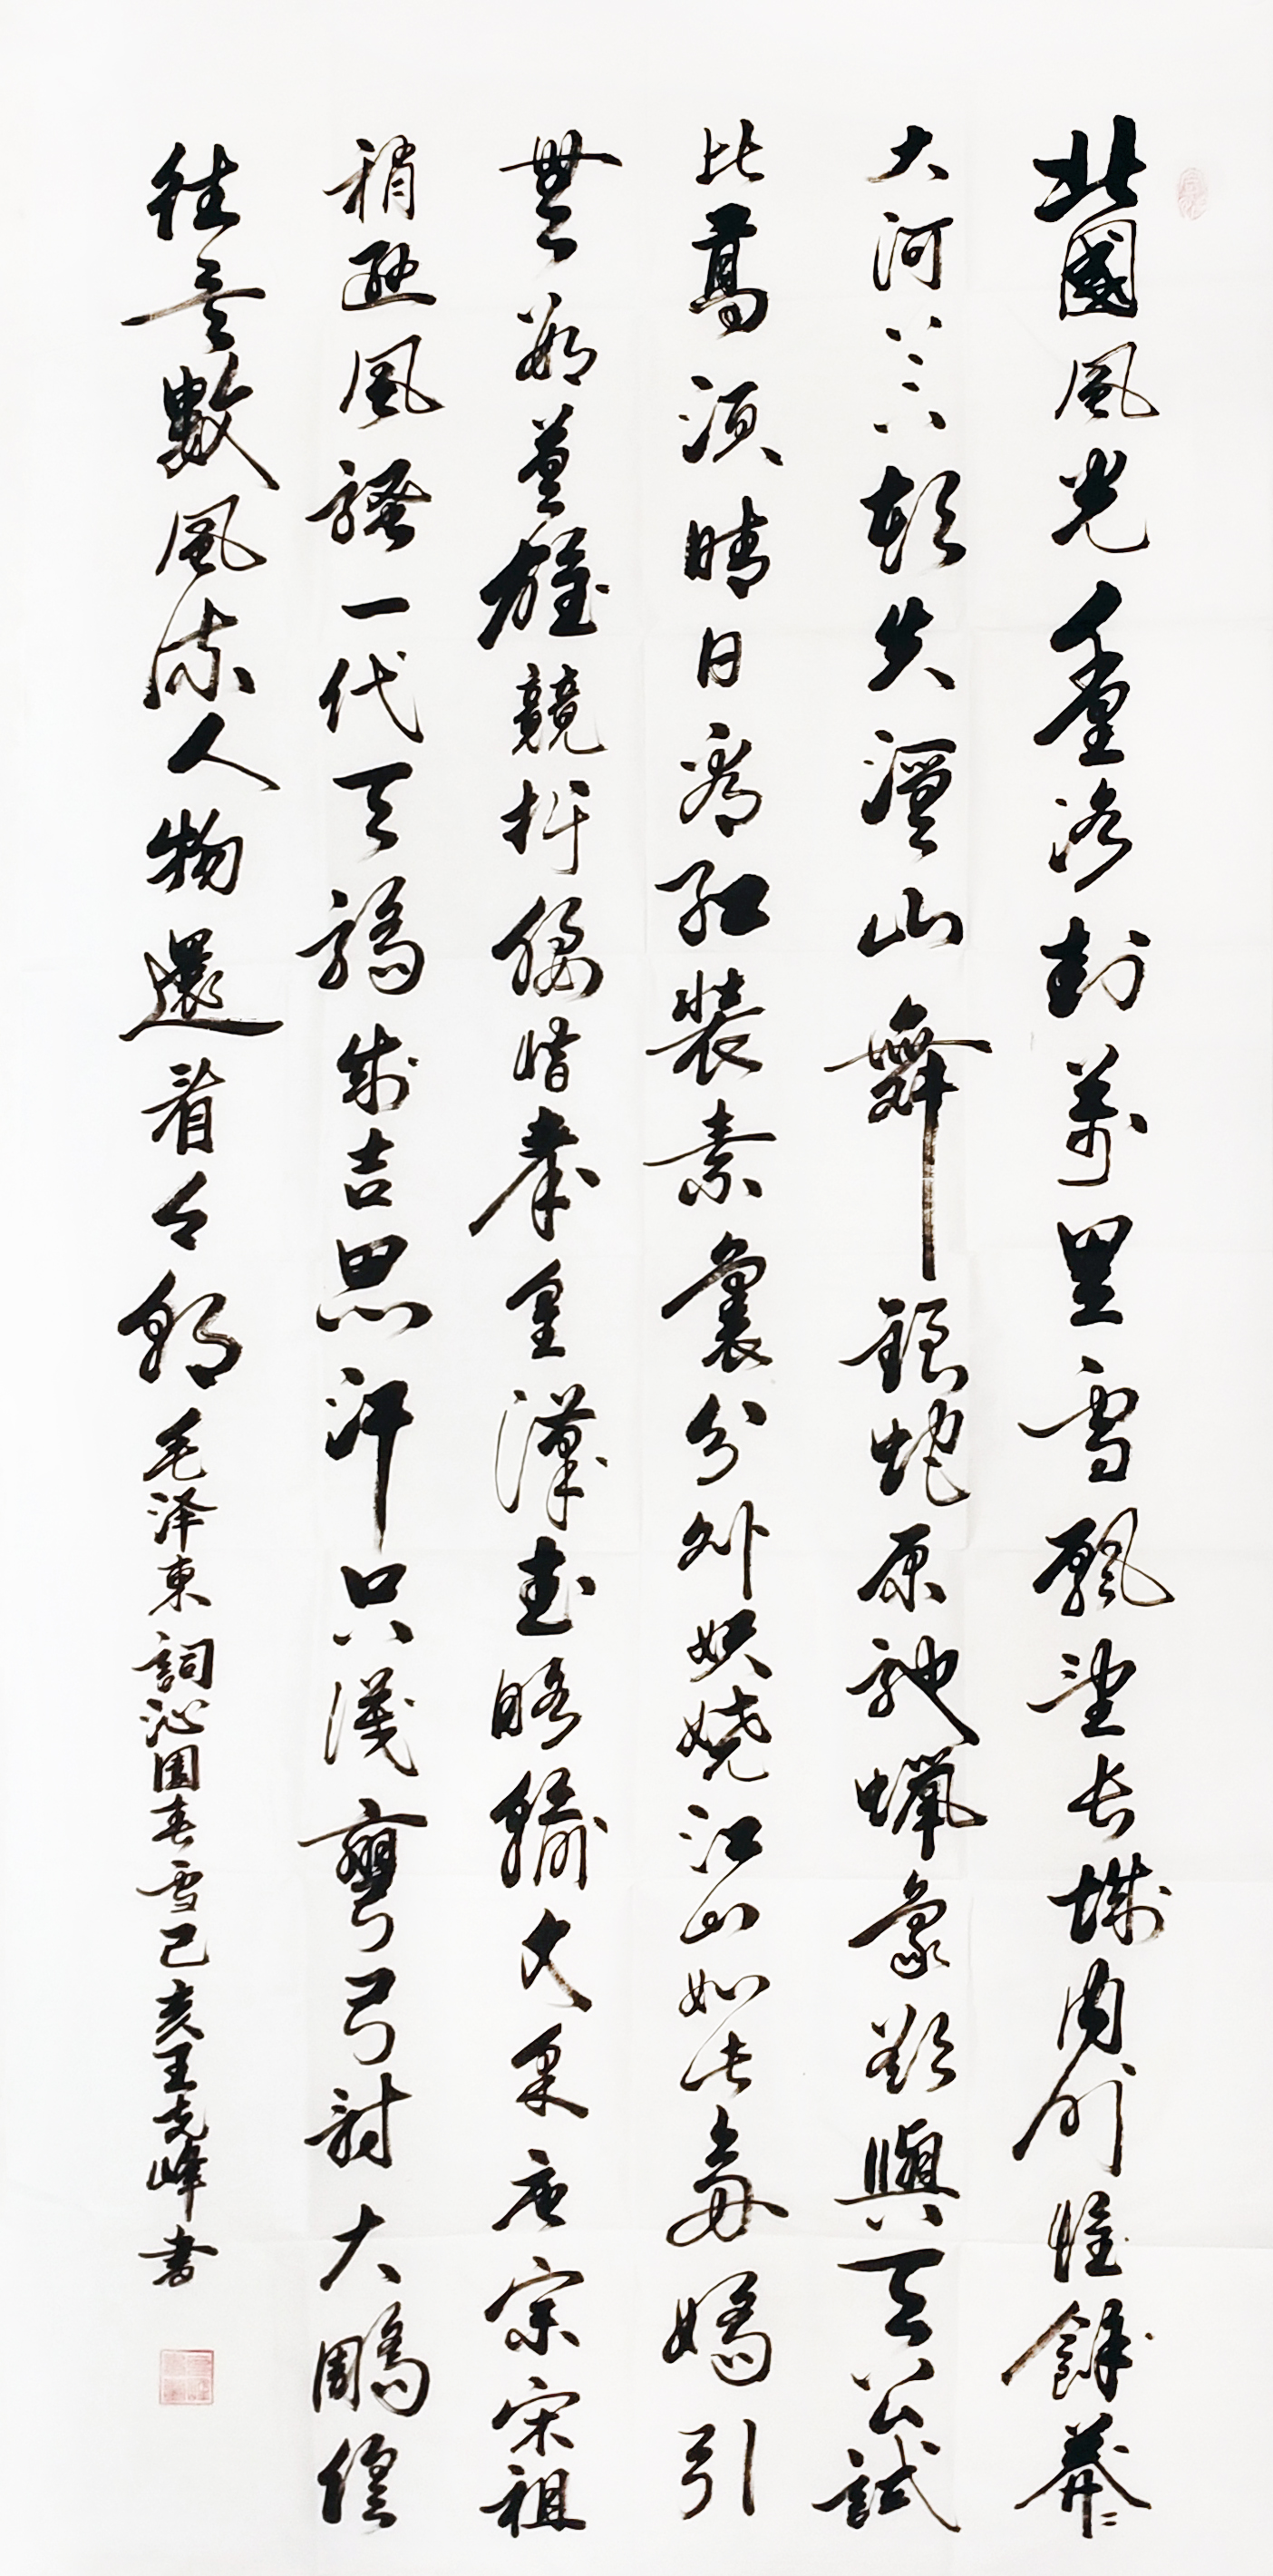 北國風光千里冰封萬里雪飄望長城內外惟餘莽〻
大河上下頓失滔〻山舞銀蛇原馳蠟象欲與天公試
比高須晴日看紅裝素裹分外妖嬈江山如此多嬌引
無數英雄競折腰惜秦皇漢武略輸文采唐宗宋祖
稍遜風騷一代天驕成吉思汗只識彎弓射大鵰俱
往矣數風流人物還看今朝 毛泽東詞沁園春雪己亥王克峰書